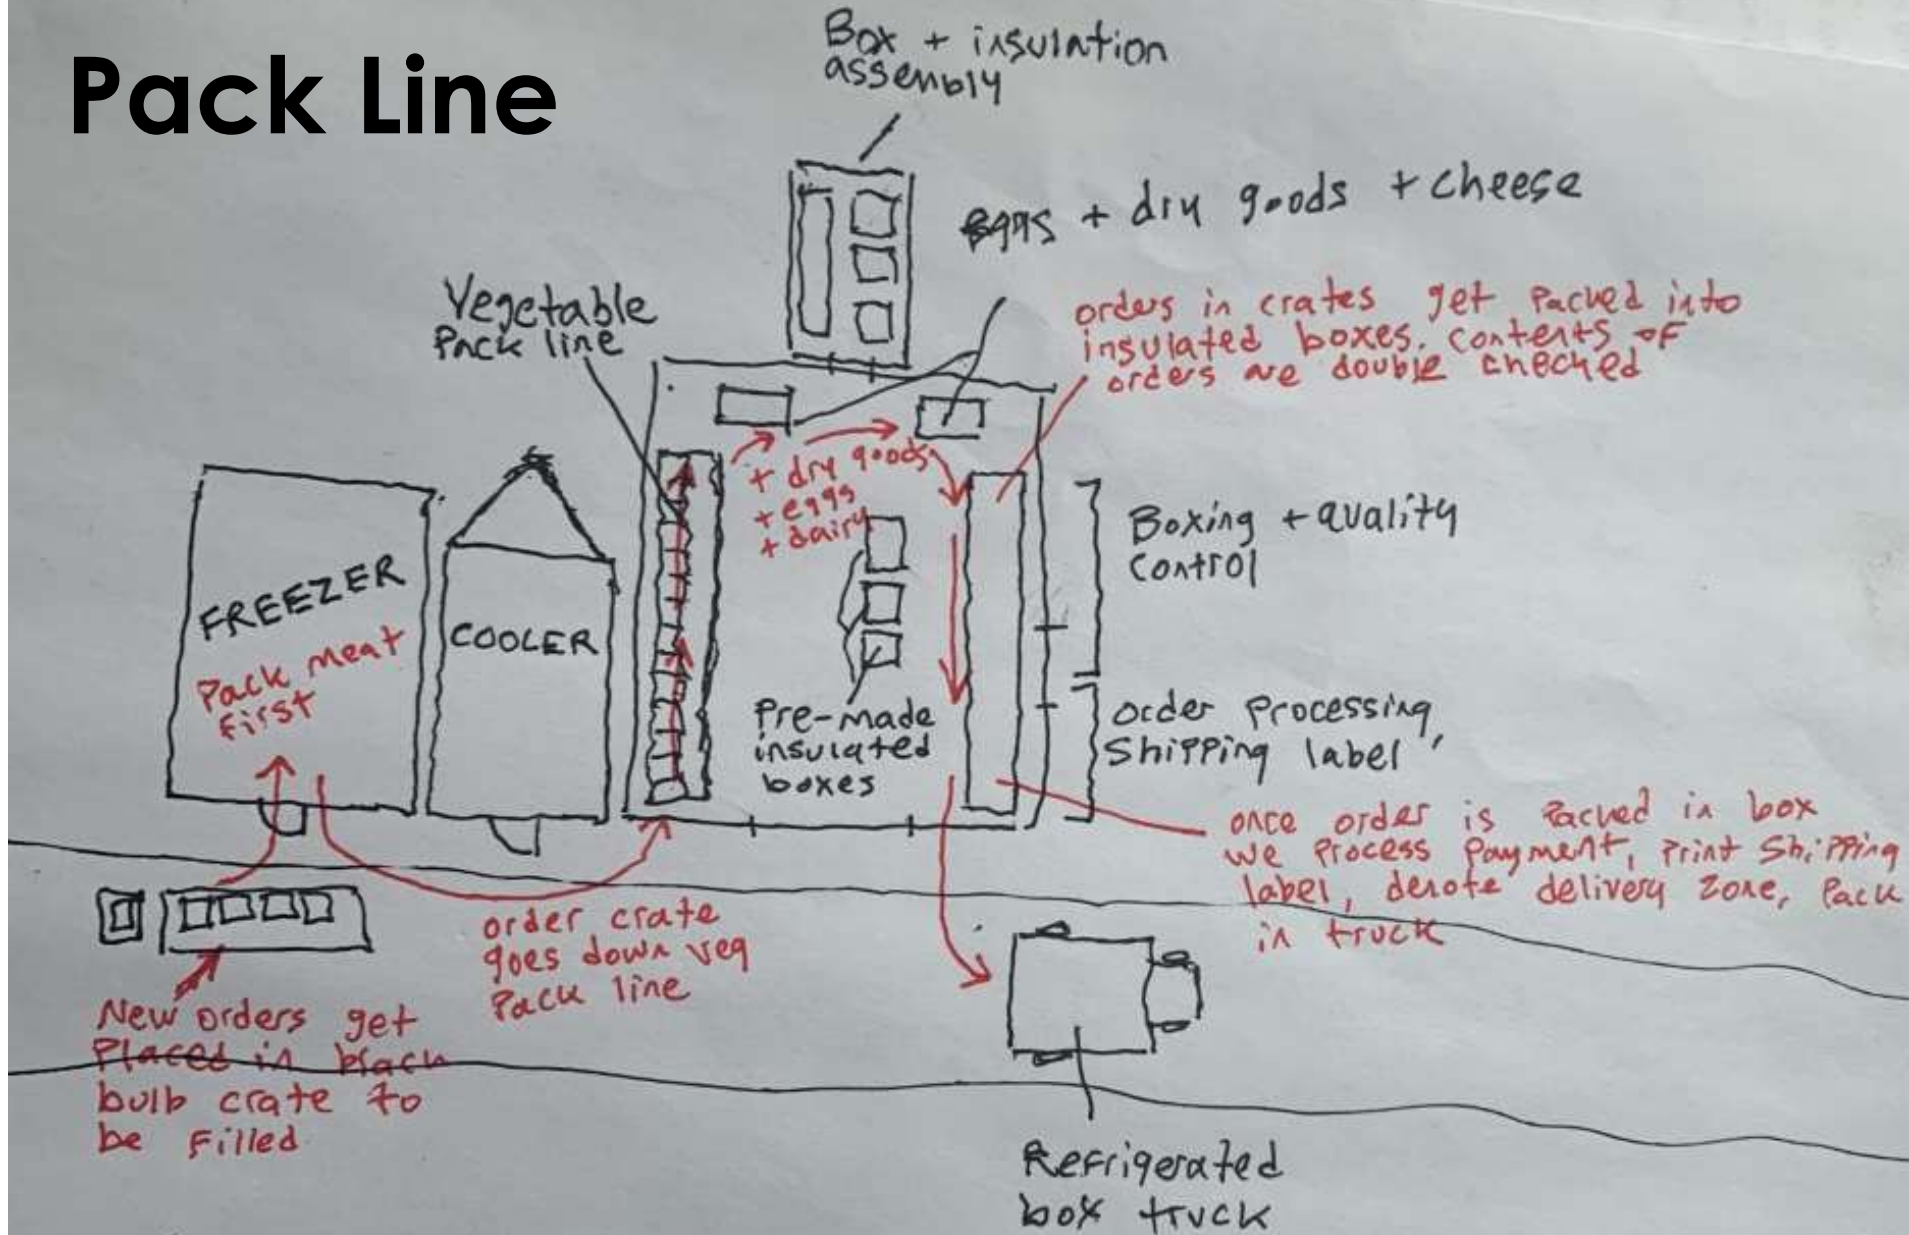 Pack Line
Box + insulation
assembly
Eggs + dry goods + cheese
Vegetable
Pack line
orders in crates get Packed into
insulated boxes. contents of
orders are double checked
+ dry goods
+ eggs
+ dairy
FREEZER
Pack meat
first
COOLER
Boxing + quality
control
Pre-made
insulated
boxes
order Processing,
Shipping label,
once order is Packed in box
we Process Payment, Print Shipping
label, denote delivery zone, Pack
in truck
order crate
goes down veg
Pack line
New orders get
Placed in black
bulb crate to
be Filled
Refrigerated
box truck